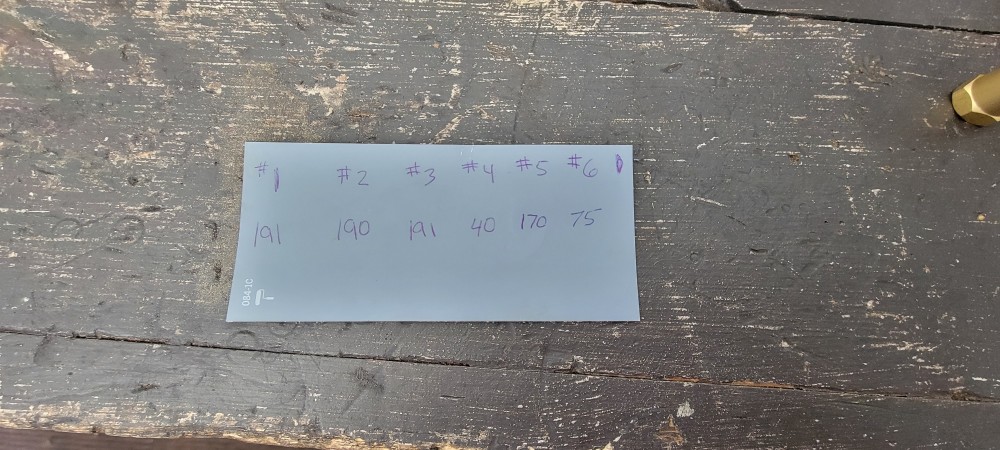 #1 #2 #3 #4 #5 #6
191 190 191 40 170 75
084-1C